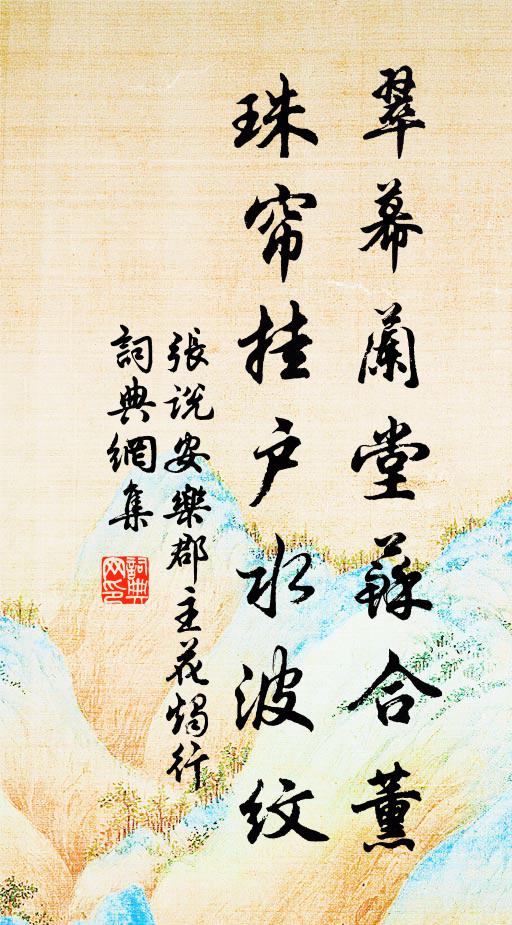 翠幕蘭堂蘇合薰
珠帘挂户水波紋
張説安樂郡主花燭行
詞典網集
詞典网印